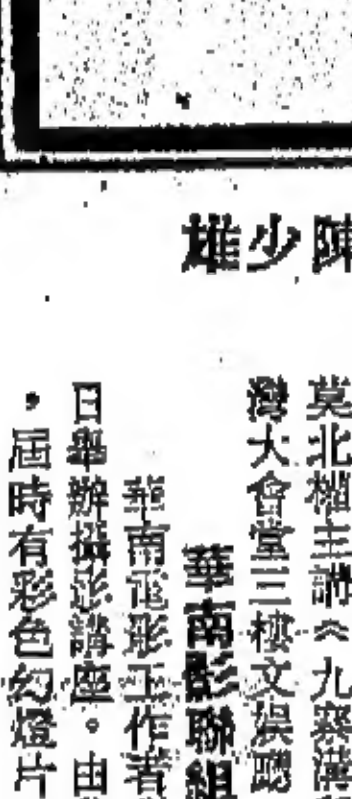 陳少雄
莫北權主講《九寨溝
灣大會堂三樓文娛廳
華南影聯組
華南電影工作者
日舉辦攝影講座。由
，屆時有彩色幻燈片